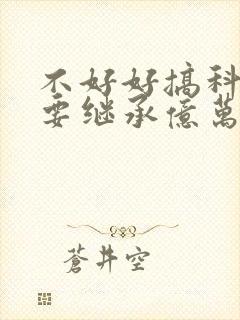 不好好搞科
要继承億萬
蒼井空